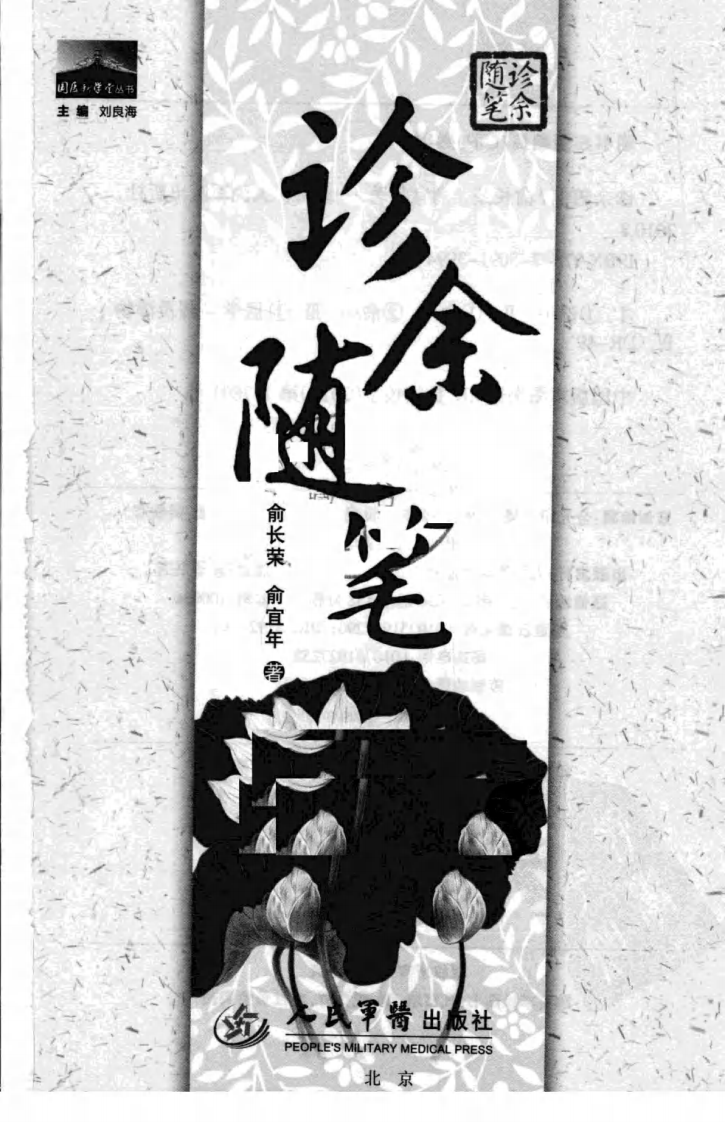 国医新学堂丛书
主编 刘良海
诊余
随笔
诊余
随笔
俞长荣 俞宜年 著
人民军醫出版社
PEOPLE'S MILITARY MEDICAL PRESS
北京